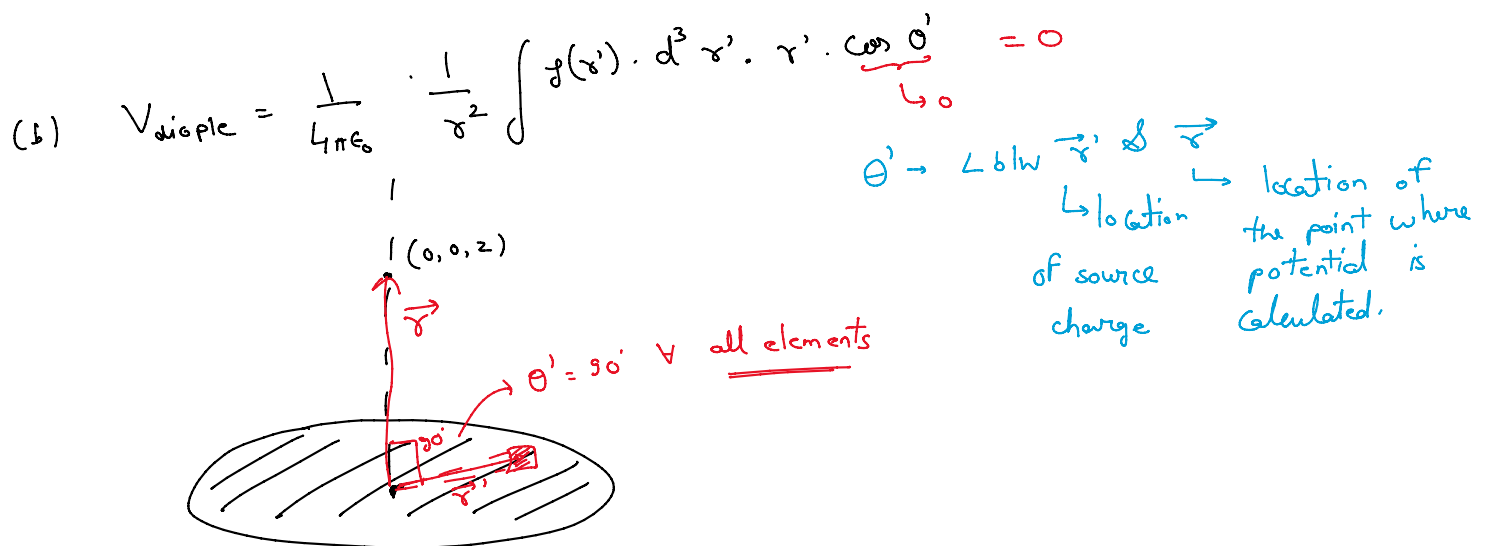 (b) V_diople = 1/4πϵ₀ · 1/r² ∫ ρ(r') · d³r' · r' · cos θ' = 0
↳ 0
θ' → ∠ b/w r⃗' & r⃗
↳ location of source charge
↳ location of the point where potential is calculated.
(0, 0, z)
r⃗
θ' = 90° ∀ all elements
90°
r⃗'